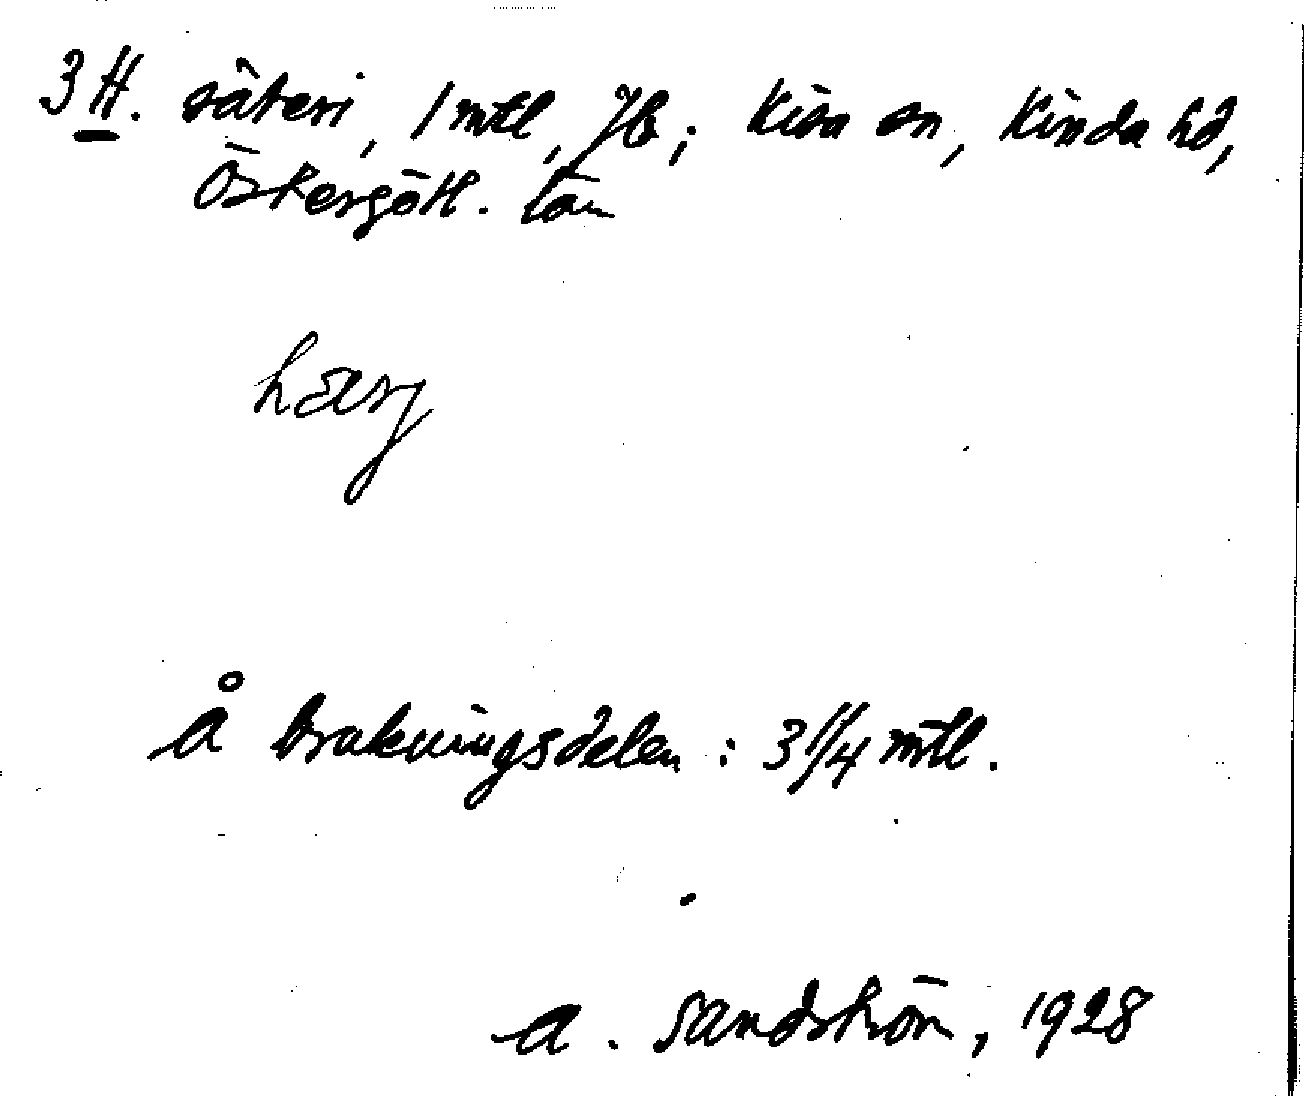 3 H. säteri, 1 mtl, JB; Kisa sn, Kinda hd,
Östergötl. län
hærj
Å brukningsdelen : 3 1/4 mtl.
A. Sandström, 1928